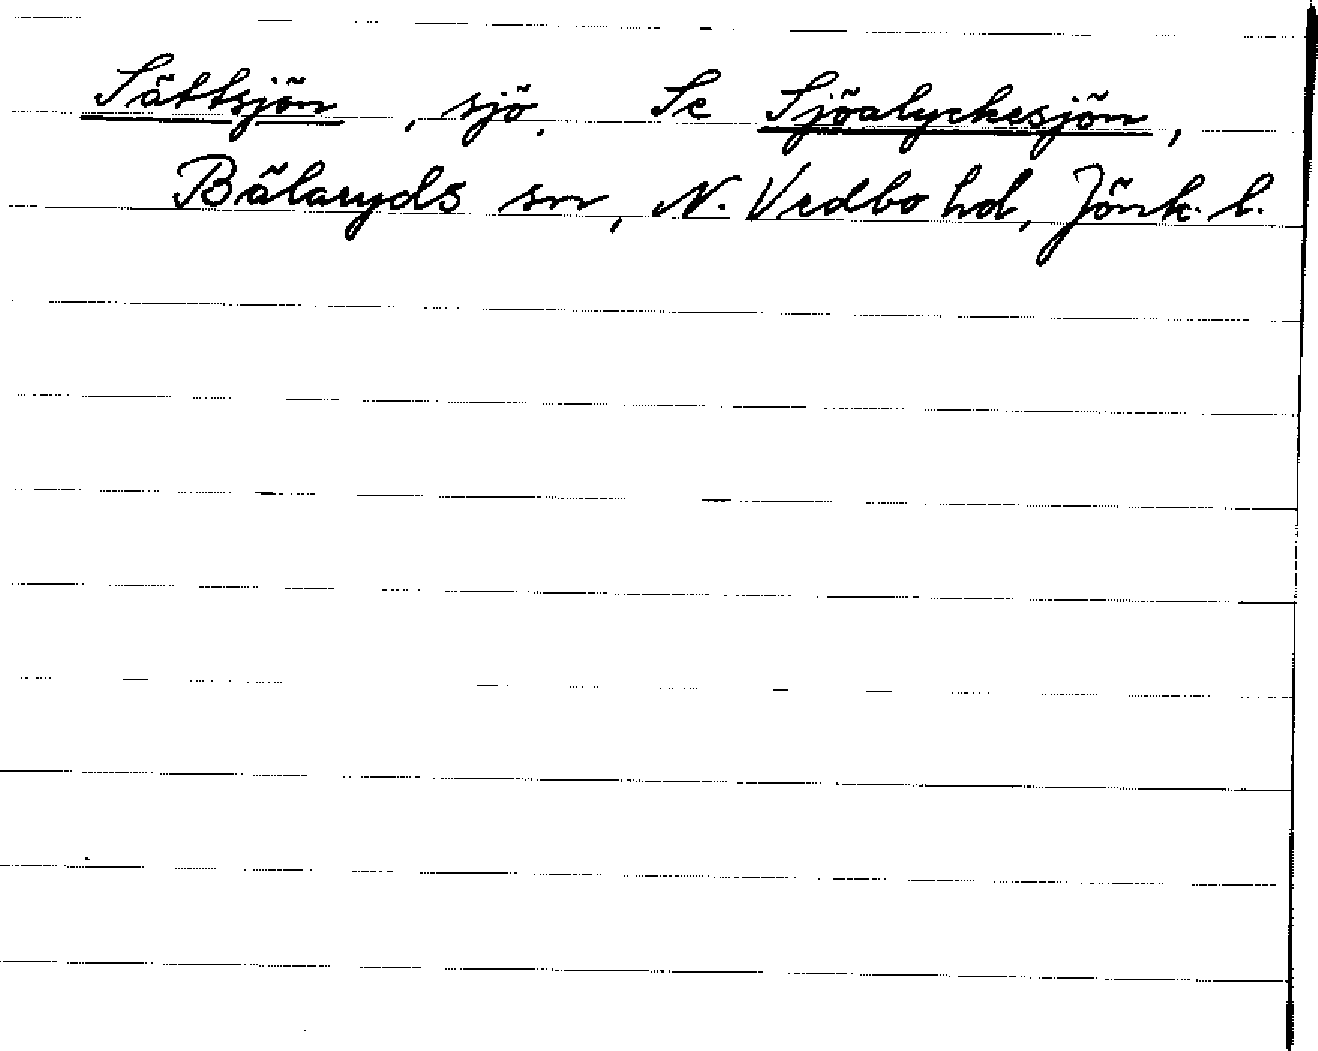 Sättsjön, sjö. Se Sjöalyckesjön,
Bälaryds sn, N. Vedbo hd, Jönk. l.